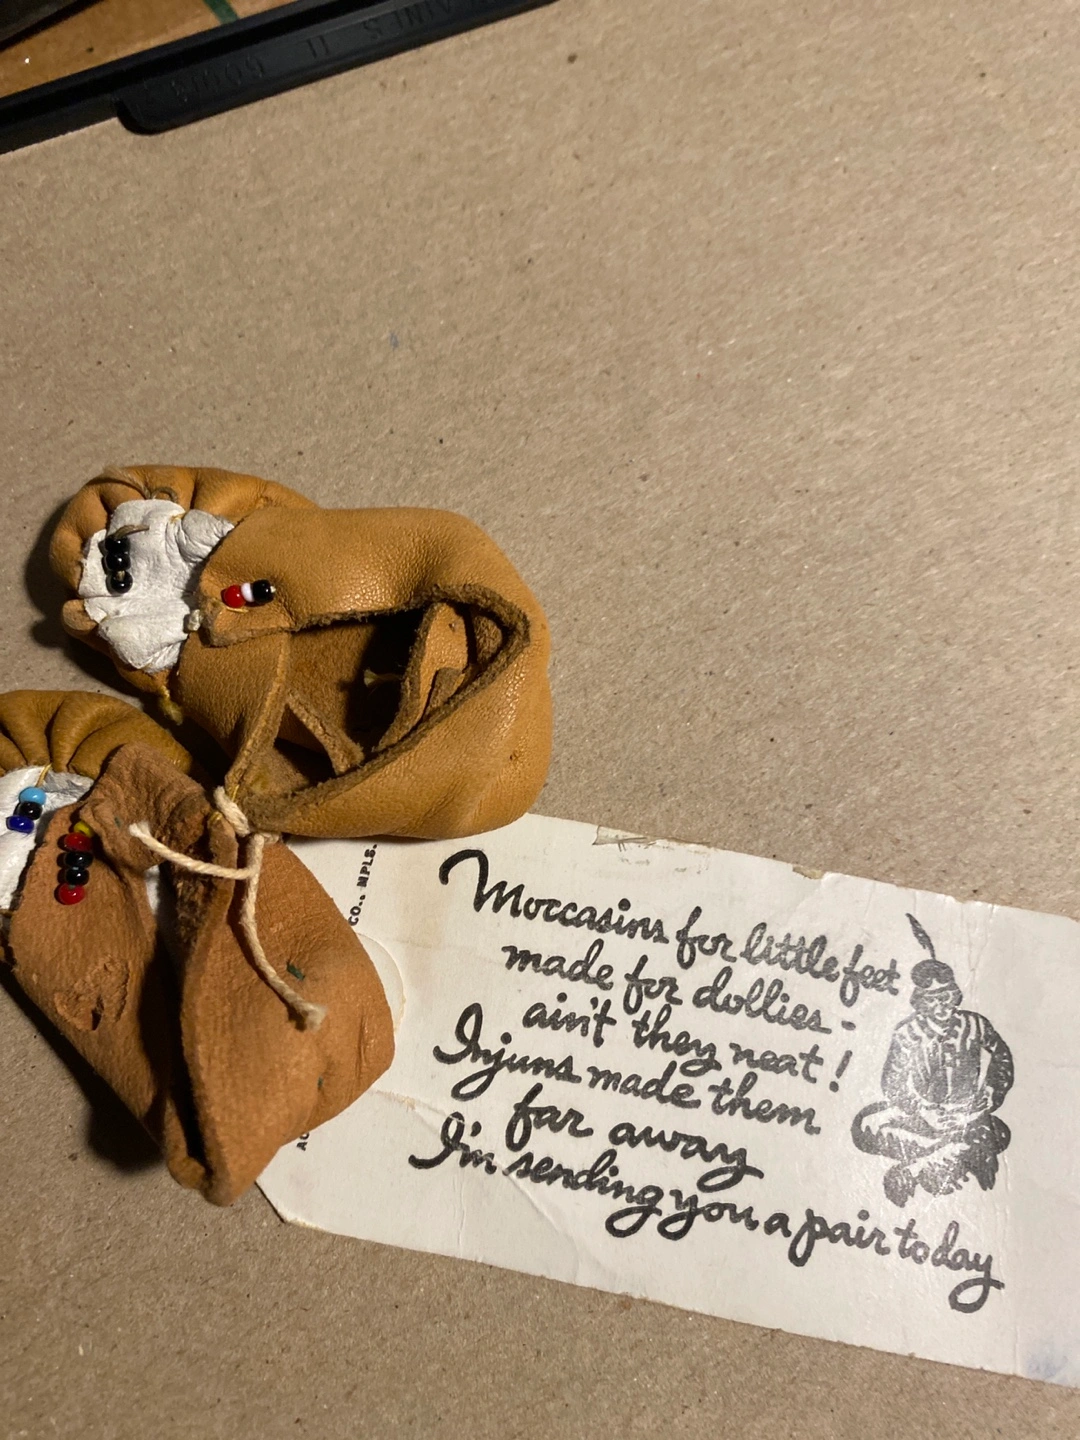 CO., MPLS.
Moccasins for little feet
made for dollies -
ain't they neat!
Injuns made them
far away
I'm sending you a pair today